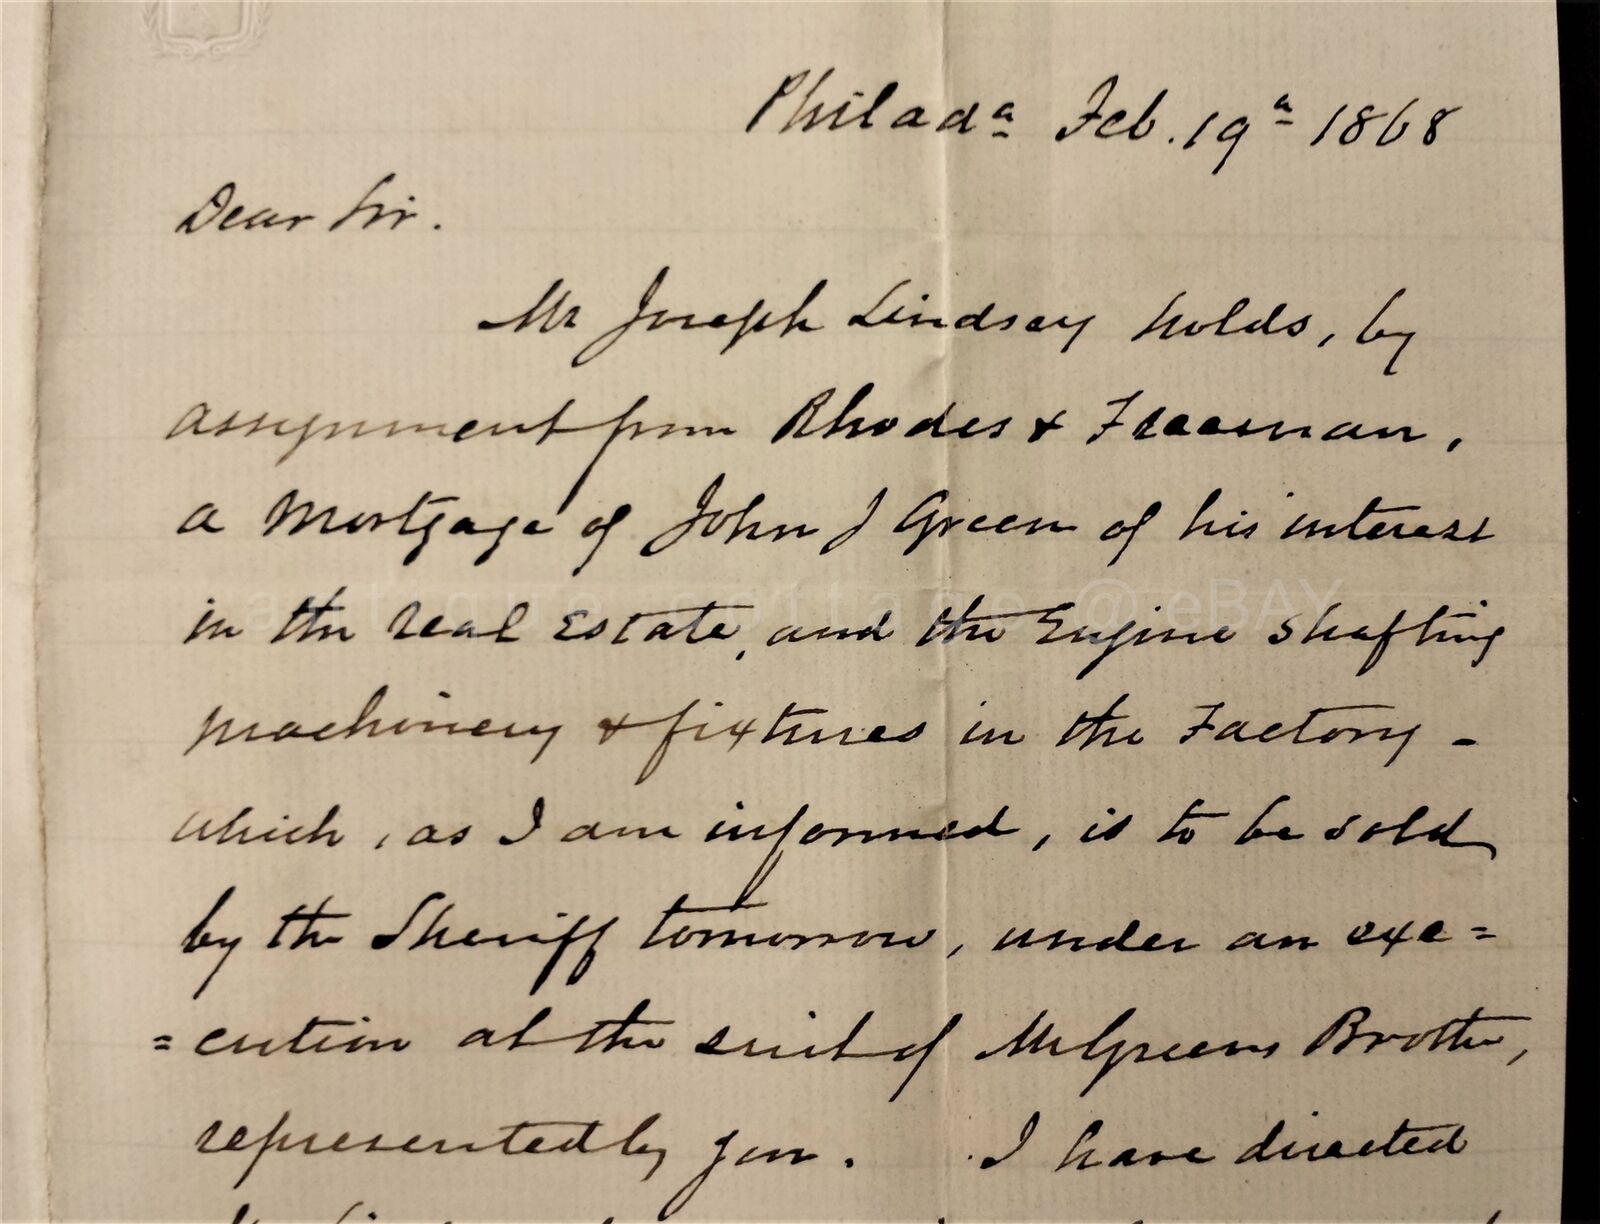 Philadᵃ Feb. 19ᵃ 1868
Dear Sir.
Mr Joseph Lindsay holds, by
assignment from Rhodes & Freeman,
a Mortgage of John J Green of his interest
in the real Estate, and the Engine Shafting
machinery & fixtures in the Factory -
which, as I am informed, is to be sold
by the Sheriff tomorrow, under an exe=
=cution at the suit of Mr Greens Brother,
represented by you. I have directed
@ eBAY